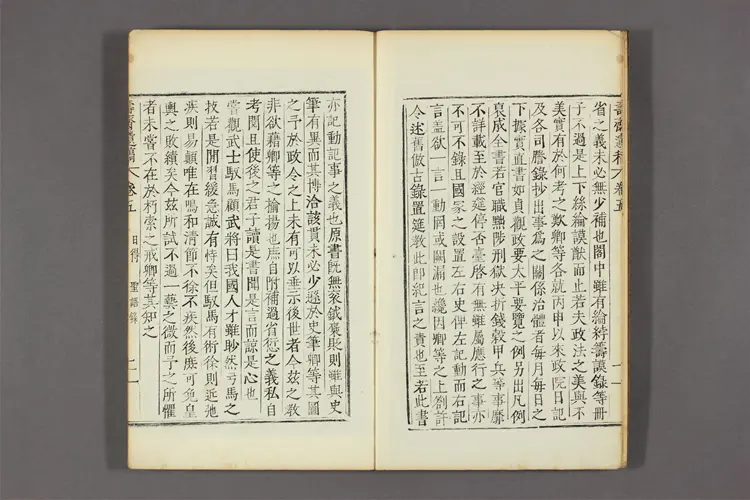 省之義未必無少補也閣中雖有綸綍籌謨錄等冊
子不過是上下絲綸謨猷而止若夫政法之美與不
美實有於何考之歎卿等各就丙申以來政院日記
及各司謄錄抄出事爲之關係治體者每月每日之
下據實直書如貞觀政要太平要覽之例另出凡例
裒成全書若官職黜陟刑獄決折錢穀甲兵等事靡
不詳載至於經筵停否臺啓有無雖屬應行之事亦
不可不錄且國家之設置左右史俾左記動而右記
言盖欲一言一動罔或闕漏也纔因卿等之上劄許
令述舊倣古錄置筵敎此卽紀言之責也至若此書
亦記動記事之義也原書旣無袞鉞褒貶則雖與史
筆有異而其博洽該貫未必少遜於史筆卿等其圖
之予於政令之上未有可以垂示後世者今玆之敎
非欲藉卿等之揄揚也庶自附補過省愆之義私自
考閱且使後之君子讀是書聞是言而諒是心也
嘗觀武士馭馬顧武將曰我國人才雖眇然弓馬之
技若是閒習緩急誠有恃矣但馭馬有術徐則近弛
疾則易顚唯在鳴和淸節不徐不疾然後庶可免皇
輿之敗績矣今玆所試不過一藝之微而予之所懼
者未嘗不在於朽索之戒卿等其知之
卷五
日得
聖語錄